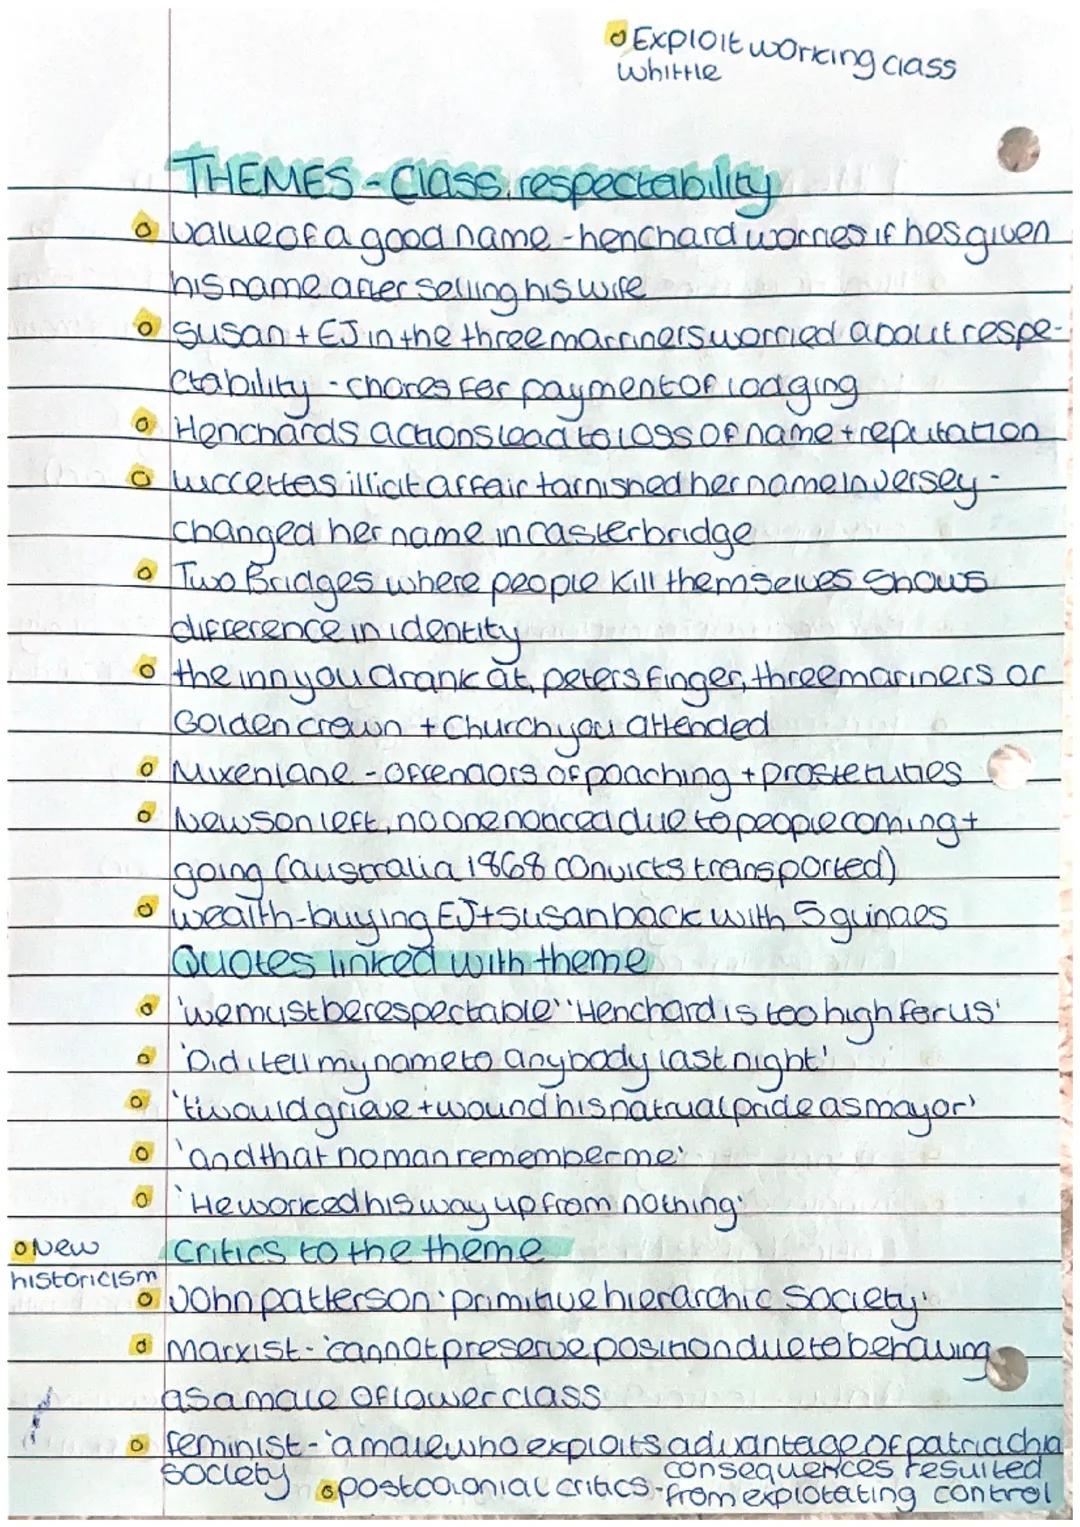 Exploit working class
Whittle
THEMES - Class, respectability
value of a good name - henchard worries if hes given
his name after selling his wife
Susan + EJ in the three marriners worried about respe-
ctability - chores for payment of lodging
Henchards actions lead to loss of name + reputation
luccettas illicit affair tarnished her name in Jersey -
changed her name in casterbridge
Two Bridges where people kill themselves shows
difference in identity
the inn you drank at, peters finger, three mariners or
Golden crown + Church you attended
Mixenlane - offendors of poaching + prostetuties
Newson left, no one noticed due to people coming +
going (australia 1868 convicts transported)
wealth - buying EJ + Susan back with 5 guinaes
Quotes linked with theme
'we must be respectable' 'Henchard is too high for us'
'Did i tell my name to anybody last night'
'tiwould grieve + wound his natrual pride as mayor'
'and that no man remember me'
'He worked his way up from nothing'
New
historicism
Critics to the theme
John patterson 'primitive hierarchic society'
Marxist - 'cannot preserve position due to behaving
as a male of lower class
feminist - 'a male who exploits advantage of patriachial
society
postcolonial critics - consequences resulted
from explotating control